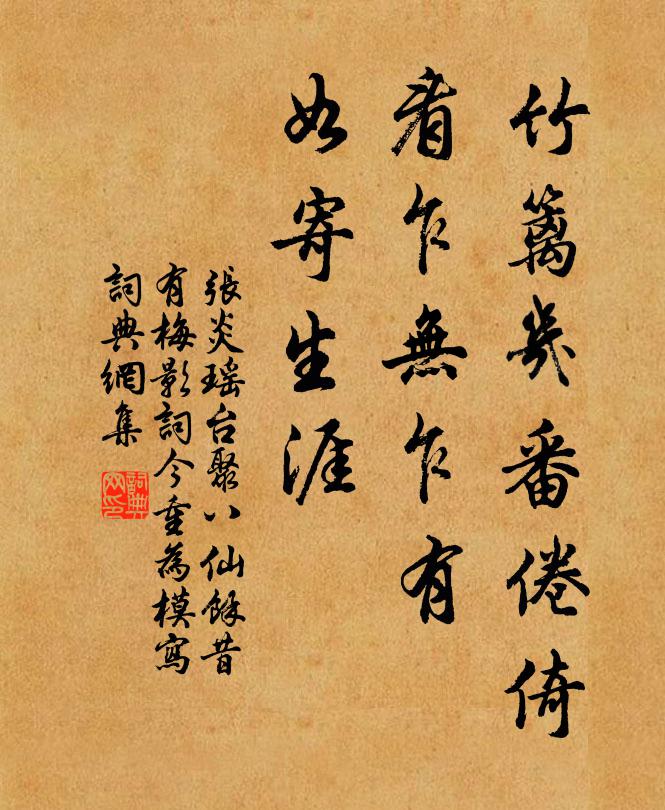 竹篱幾番倦倚
看乍無乍有
如寄生涯
張炎瑶台聚八仙餘昔
有梅影詞今重為模寫
詞典網集
詞典
网印